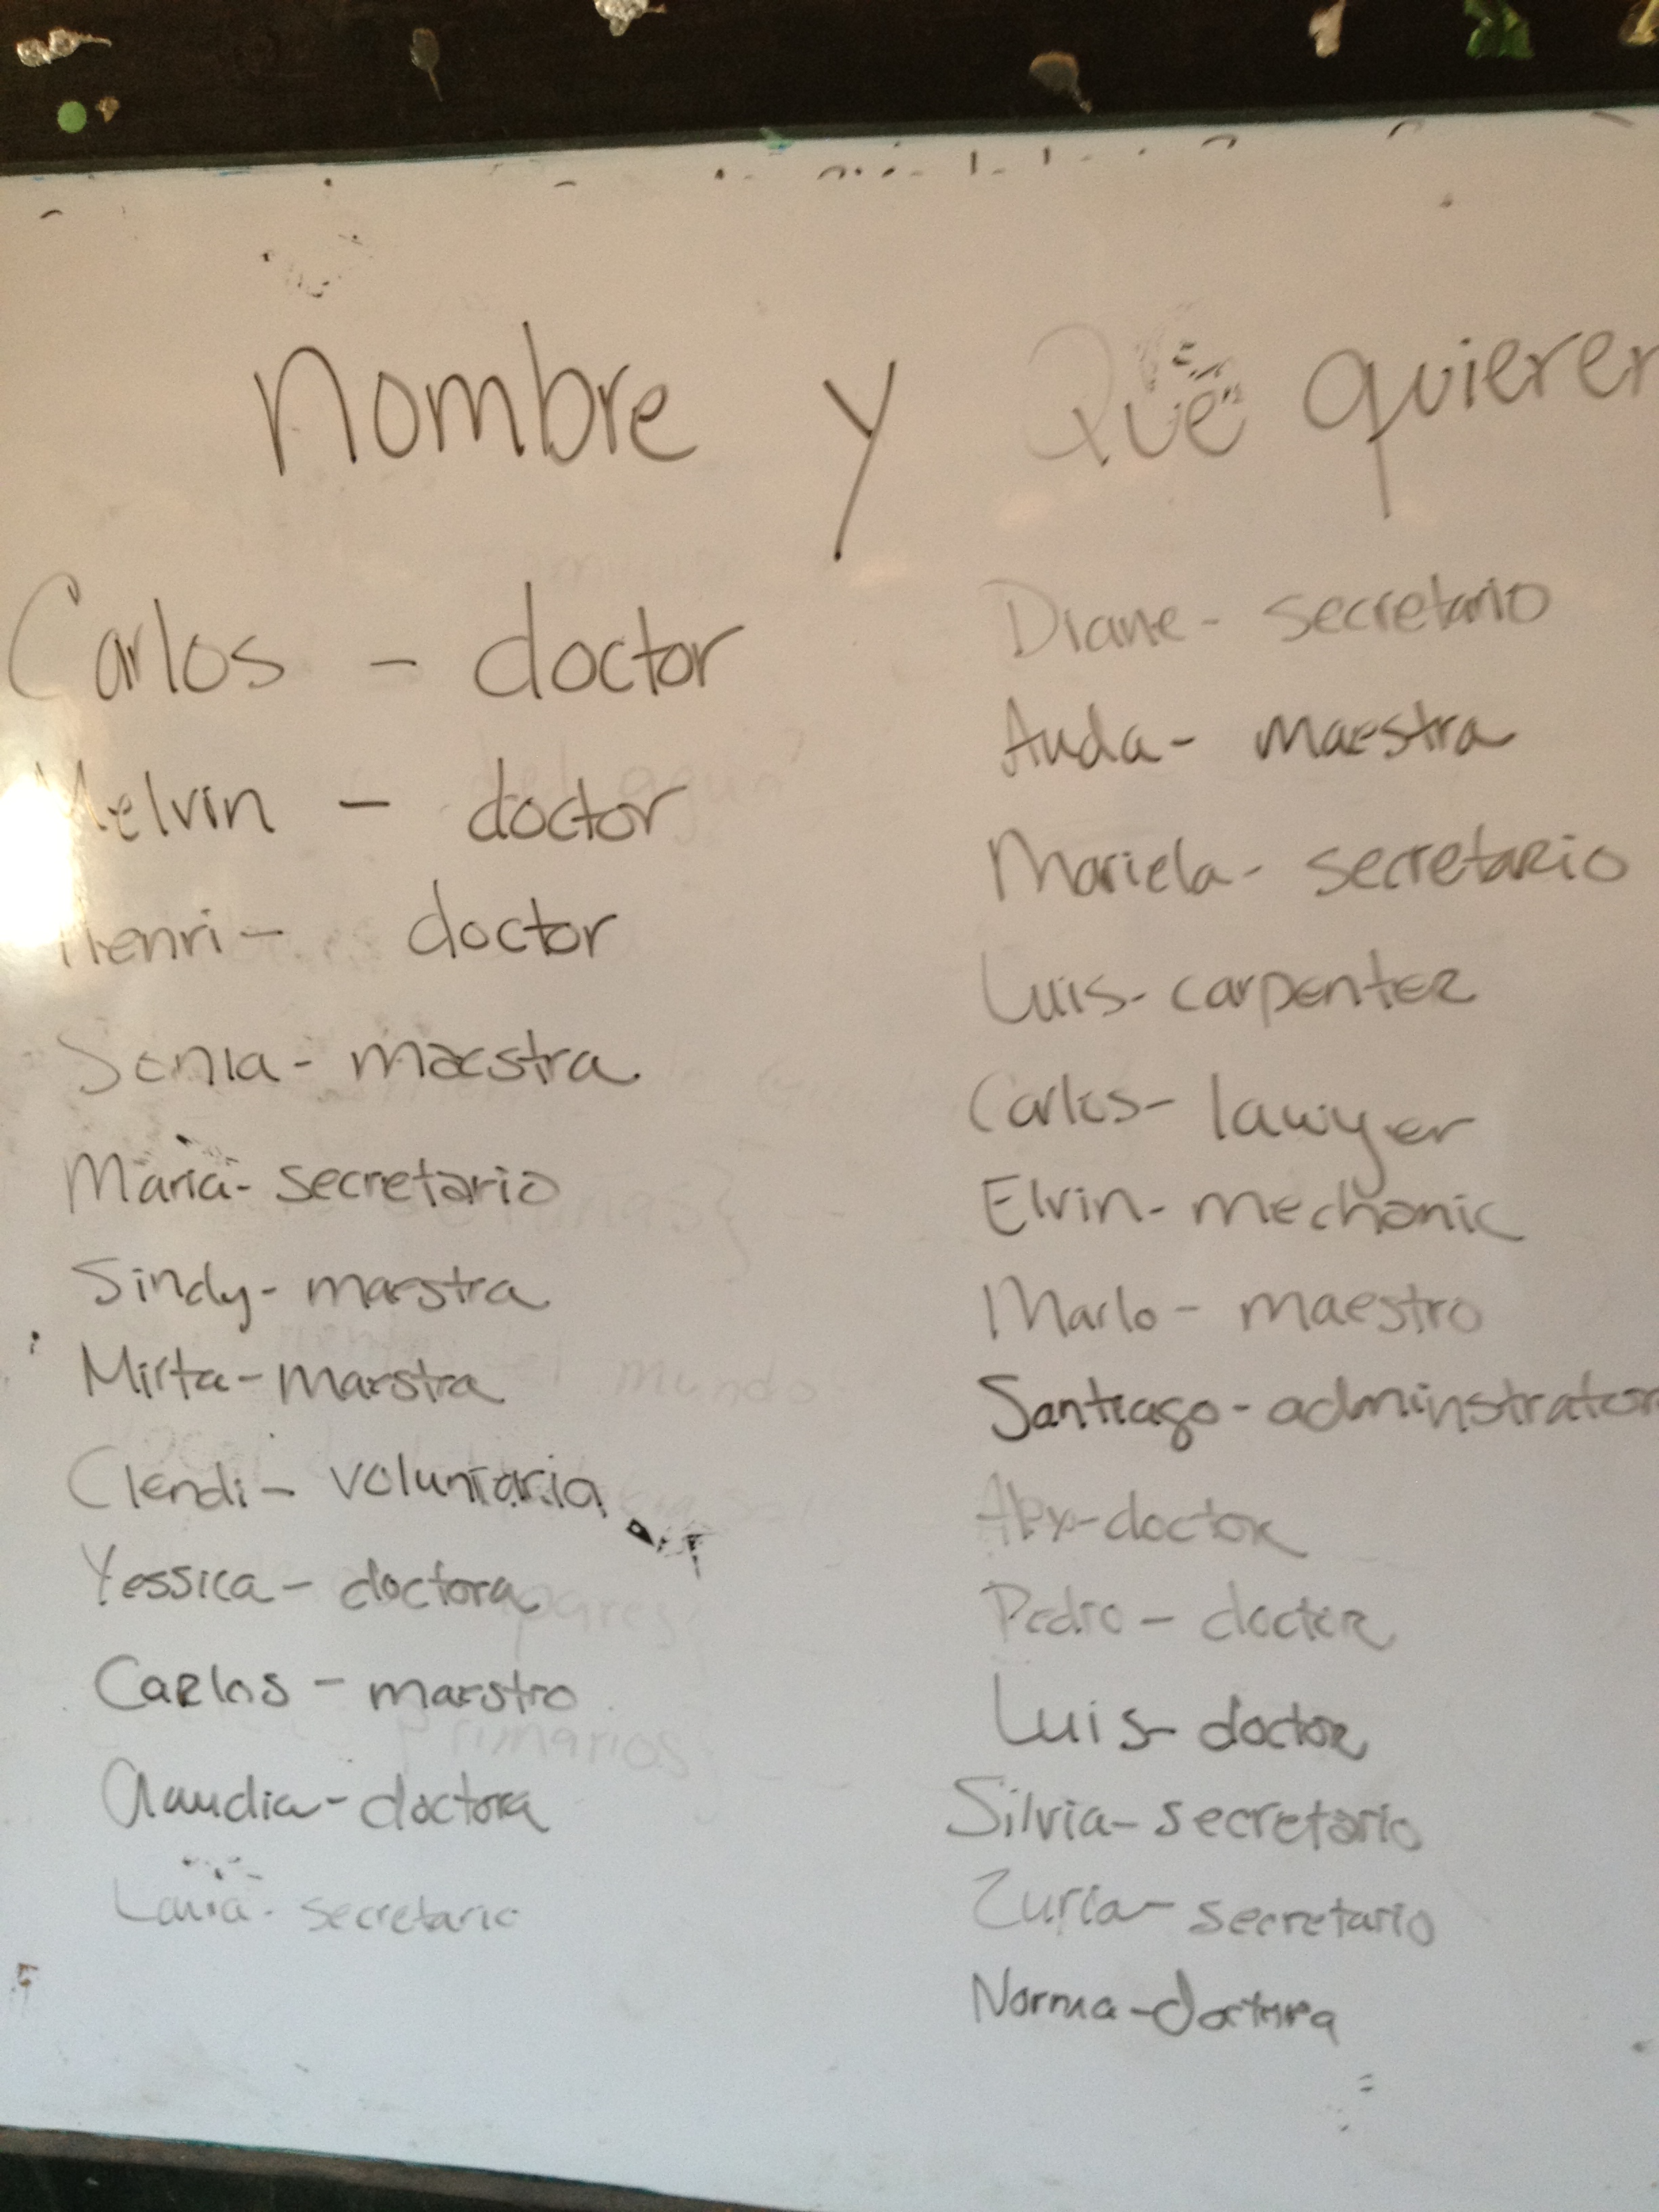 nombre y Que quieren
Carlos - doctor
Melvin - doctor
Henri - doctor
Sonia - maestra
Maria - secretario
Sindy - maestra
Mirta - maestra
Clendi - voluntaria
Yessica - doctora
Carlos - maestro
Claudia - doctora
secretario
Diane - secretario
Auda - maestra
Mariela - secretario
Luis - carpenter
Carlos - lawyer
Elvin - mechanic
Marlo - maestro
Santiago - adminstrator
Alex - doctor
Pedro - doctor
Luis - doctor
Silvia - secretario
Zuria - secretario
Norma - doctora